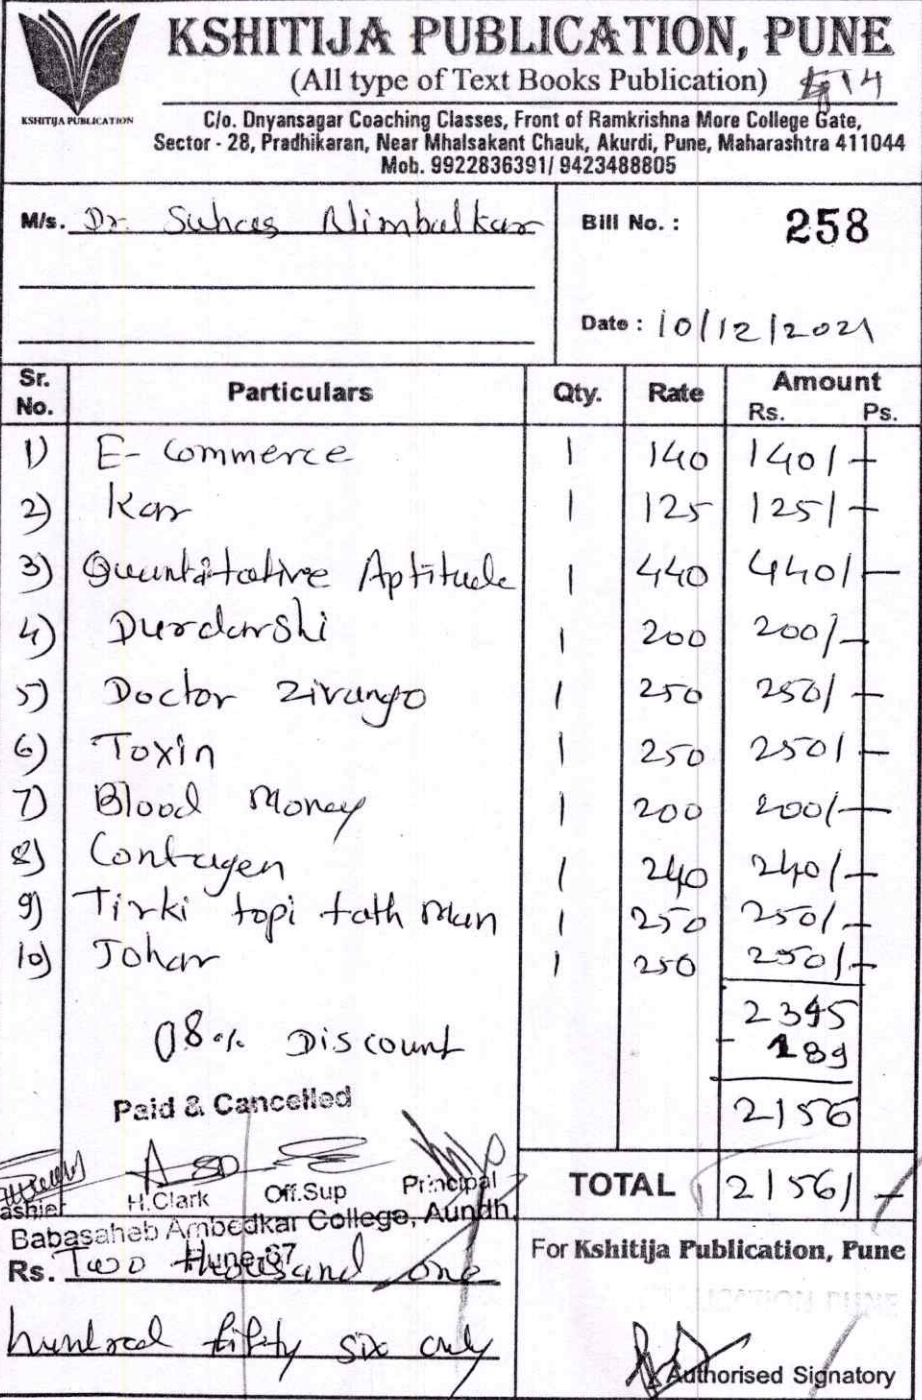 KSHITIJA PUBLICATION, PUNE
(All type of Text Books Publication)
14
KSHITIJA PUBLICATION
C/o. Dnyansagar Coaching Classes, Front of Ramkrishna More College Gate,
Sector - 28, Pradhikaran, Near Mhalsakant Chauk, Akurdi, Pune, Maharashtra 411044
Mob. 9922836391/ 9423488805
M/s. Dr. Suhas Nimbalkar
Bill No. : 258
Date : 10/12/2021
Sr. No. Particulars Qty. Rate Amount Rs. Ps.
1) E-Commerce 1 140 140/-
2) Kar 1 125 125/-
3) Quantitative Aptitude 1 440 440/-
4) Durdarshi 1 200 200/-
5) Doctor Zivango 1 250 250/-
6) Toxin 1 250 250/-
7) Blood Money 1 200 200/-
8) Contagen 1 240 240/-
9) Tirki topi tath man 1 250 250/-
10) Johar 1 250 250/-
2345
08% Discount - 189
2156
Paid & Cancelled
TOTAL 2156/-
ashier H.Clark Off.Sup Principal
Babasaheb Ambedkar College, Aundh,
Pune-67
Rs. Two thousand one
hundred fifty six only
For Kshitija Publication, Pune
Authorised Signatory